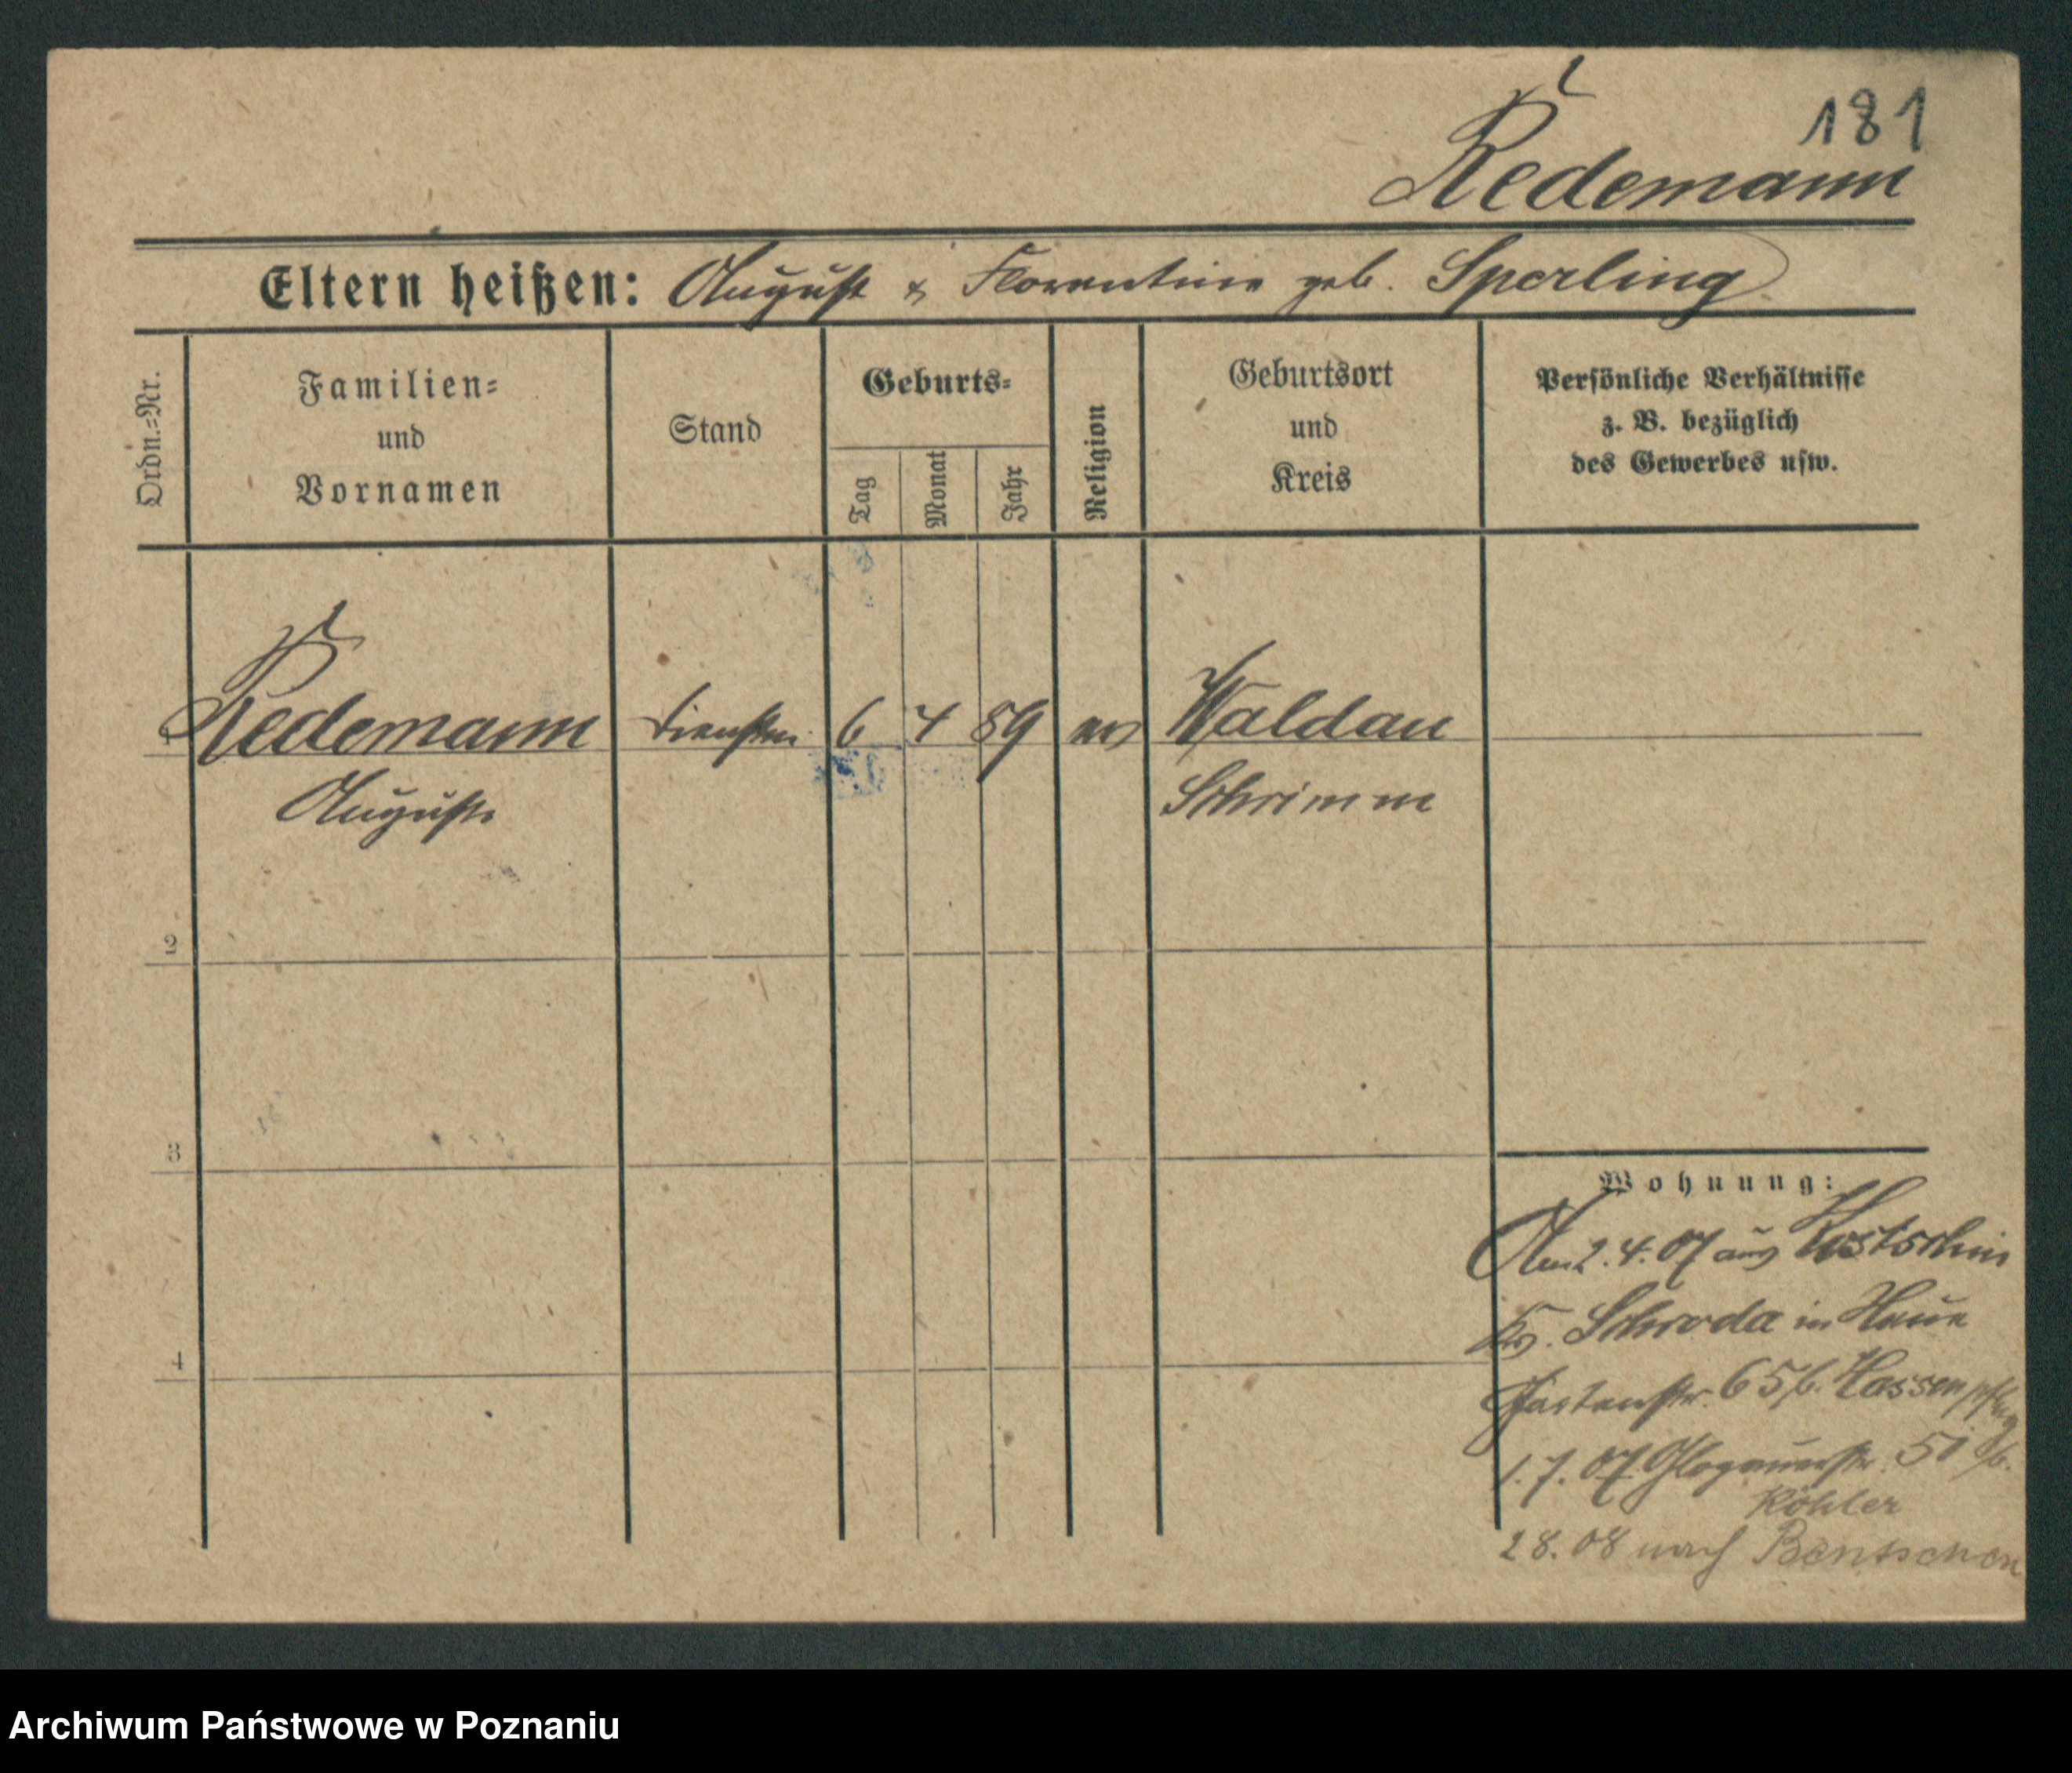 181
Redemann
Eltern heißen: August & Florentine geb. Sperling
Ordn.=Nr.
Familien=
und
Vornamen
Stand
Geburts=
Tag
Monat
Jahr
Religion
Geburtsort
und
Kreis
Persönliche Verhältnisse
z. B. bezüglich
des Gewerbes usw.
1 Redemann 6 4 89 ev Waldau
Auguste Schrimm
2
3
4
Wohnung:
2.4.07 aus Kostschin
Kr. Schroda in
65b. Hassenpflug
1.7.07 Glogauerstr. 51 b.
Köhler
28.08 nach Bentschen
Archiwum Państwowe w Poznaniu